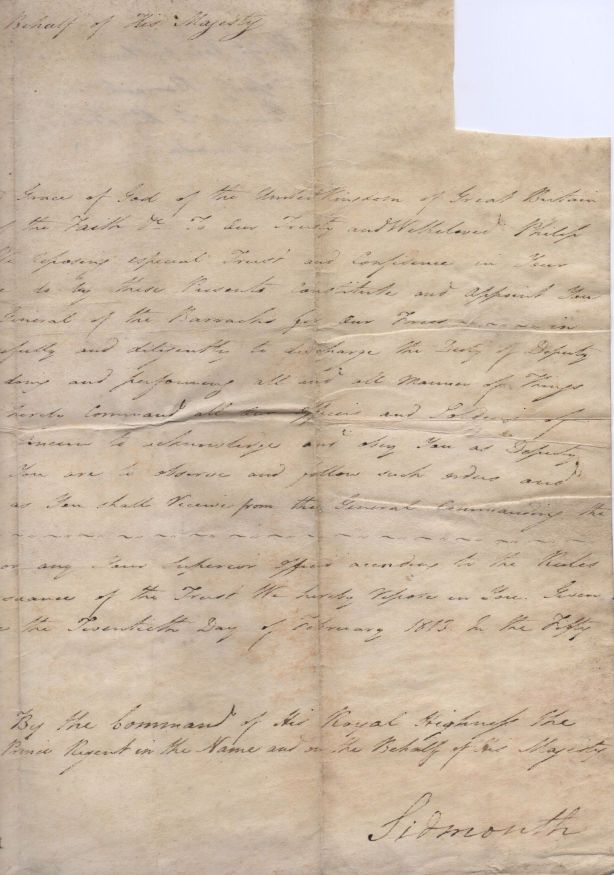 Behalf of His Majesty
Grace of God of the United Kingdom of Great Britain
the Faith &c To Our Trusty and Welbeloved Philip
reposing especial Trust and Confidence in Your
do by these Presents Constitute and Appoint You
General of the Barracks for Our Forces in
fully and diligently to discharge the Duty of Deputy
doing and performing all and all Manner of Things
hereby Command all Our Officers and Soldiers of
to acknowledge and obey You as Deputy
You are to observe and follow such orders and
as You shall receive from the General Commanding the
or any Your Superior Officer according to the Rules
suance of the Trust We hereby repose in You. Given
the Twentieth Day of February 1813 In the Fifty
By the Command of His Royal Highness the
Prince Regent in the Name and on the Behalf of His Majesty
Sidmouth